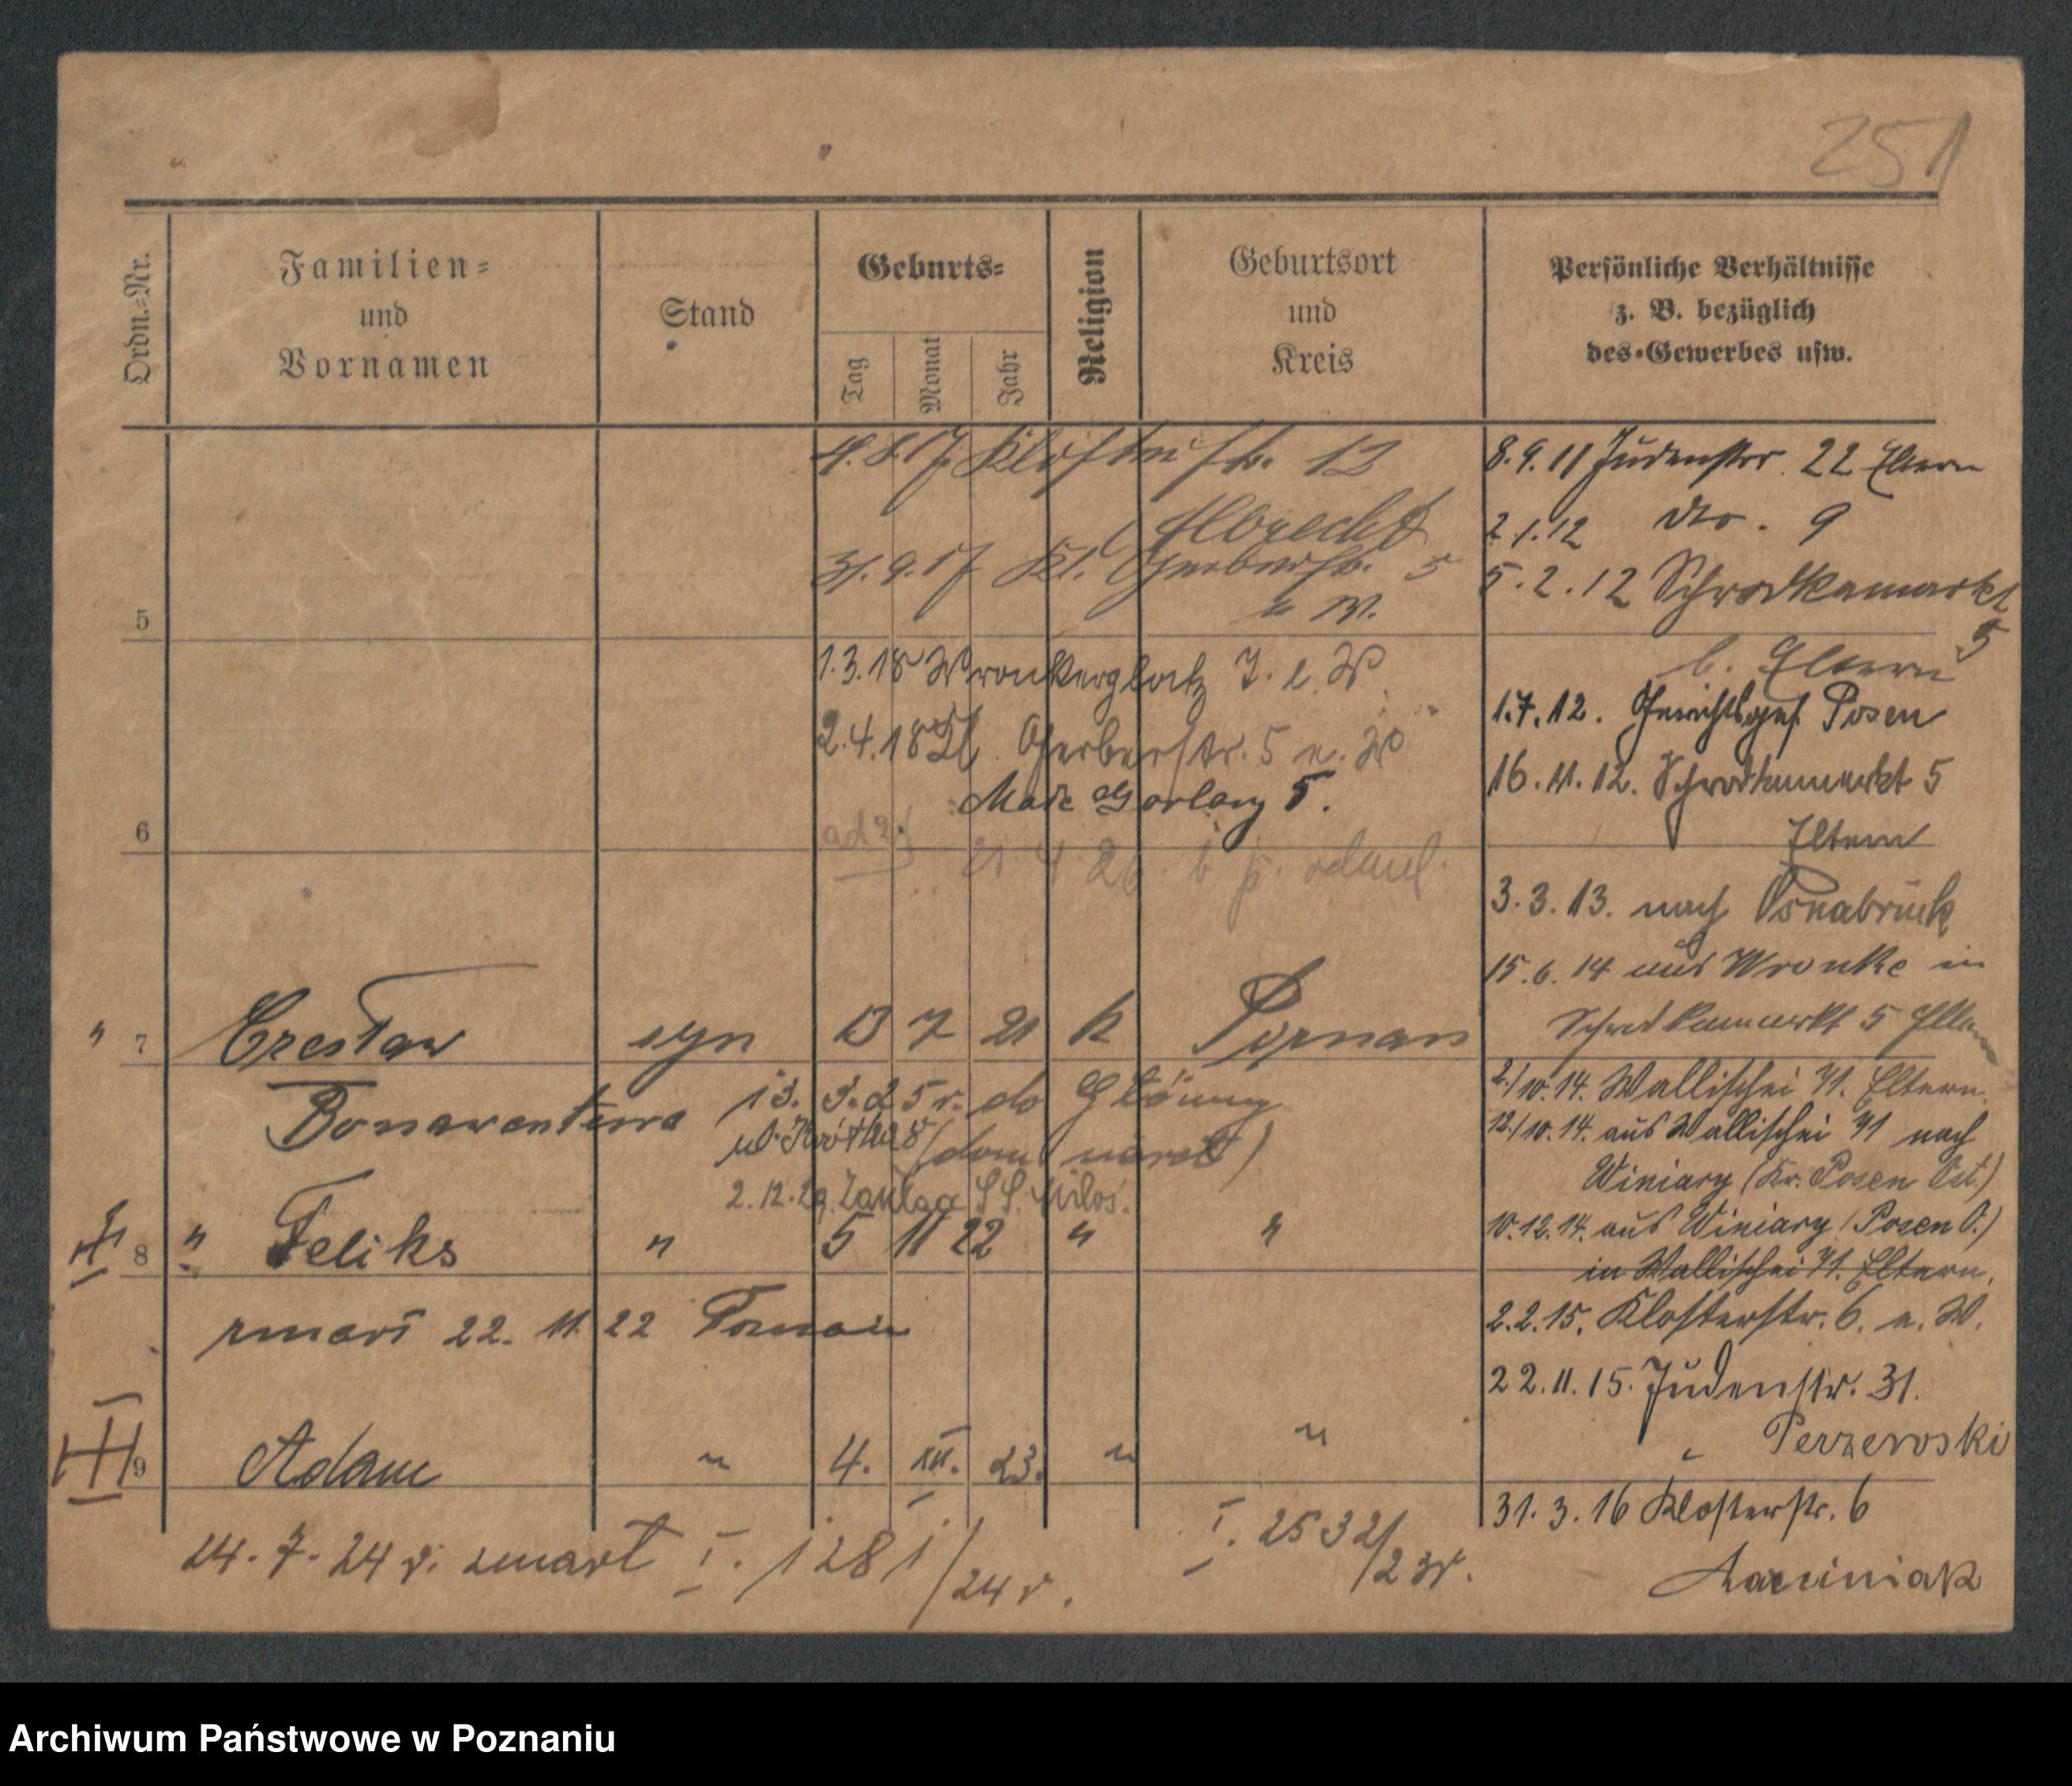 251
Ordn.-Nr.
Familien-
und
Vornamen
Stand
Geburts-
Tag
Monat
Jahr
Religion
Geburtsort
und
Kreis
Persönliche Verhältnisse
z. B. bezüglich
des Gewerbes usw.
4.8.17 Klosterstr. 13
Albrecht
31.9.17 Kl. Gerberstr. 5
u W.
5
1.3.18 Wronkerplatz
2.4.18 Kl. Gerberstr. 5 u. W
Małe Garbary 5.
6
ad 2)
21. 4. 26.
7
Czesław
syn
13 7 21 k
Poznań
Bonawentura
13. 3. 25 r. do Główny
(dom
2.12.29.
8
" Feliks
"
5 11 22 "
"
zmarł 22. 11 22 Poznań
9
Adam
"
4. XII. 23. "
"
24. 7. 24 r. zmarł I. 1281/24 r.
I. 2532/23r.
8.9.11 Judenstr. 22 Eltern
2.1.12 dto. 9
5.2.12 Schrodkamarkt
5
b. Eltern
1.7.12. Gerichtsgef. Posen
16.11.12. Schrodkamarkt 5
Eltern
3.3.13. nach Osnabrück
15.6.14 aus Wronke in
Schrodkamarkt 5 Eltern
2./10.14. Wallischei 71. Eltern.
12./10.14. aus Wallischei 71 nach
Winiary (Kr. Posen Ost.)
10.12.14. aus Winiary (Posen O.)
in Wallischei 71. Eltern.
2.2.15. Klosterstr. 6. u. W.
22.11.15. Judenstr. 31.
31.3.16 Klosterstr. 6
Archiwum Państwowe w Poznaniu